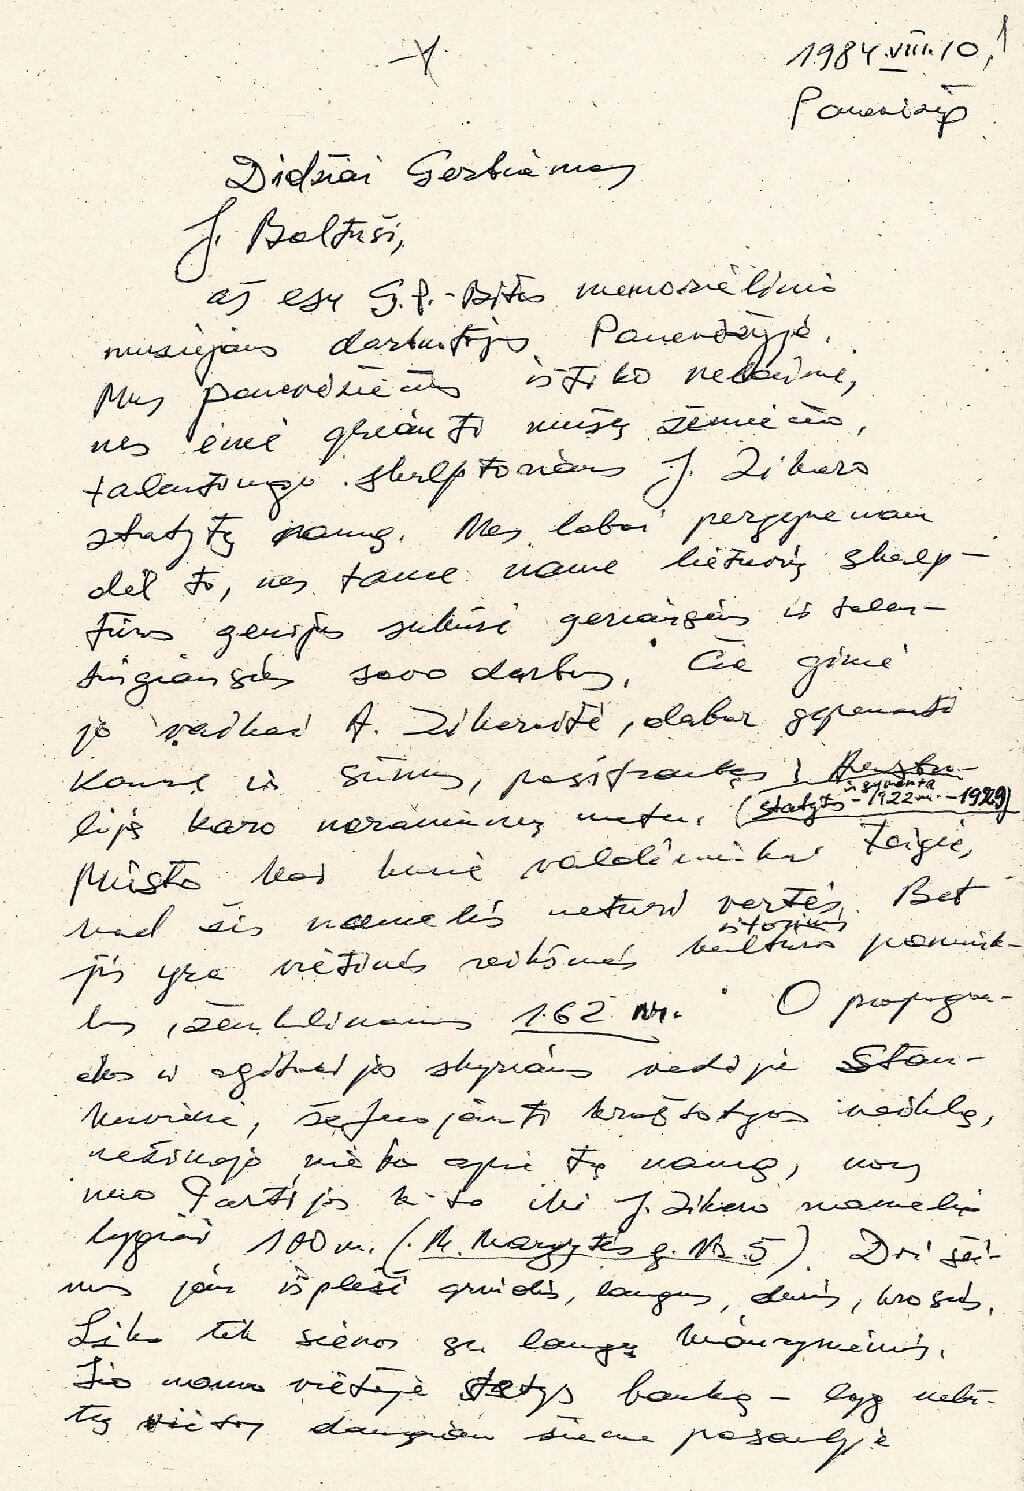 1984.VIII.10,
Panevėžys
Didžiai Gerbiamas
J. Baltuši,
aš esu G. P.-Bitės memorialinio
muziejaus darbuotojas Panevėžyje.
Mus panevėžiečius ištiko nelaimė,
nes ėmė griauti mūsų žemiečio,
talentingo skulptoriaus J. Zikaro
statytą namą. Mes labai pergyvename
dėl to, nes tame name lietuvių skulp-
tūros genijus sukūrė geriausius ir talen-
tingiausius savo darbus. Čia gimė
jo vaikai A. Zikaraitė, dabar gyvenanti
Kaune ir sūnus, pasitraukęs į Austra-
liją karo neramumų metu. (statytas ir gyventa - 1922 m. - 1929)
Miesto kai kurie valdininkai teigia,
kad šis namelis neturi vertės. Bet
jis yra vietinės reikšmės istorinis kultūros pamink-
las, ženklinamas 162 nr. O propagan-
dos ir agitacijos skyriaus vedėja Stan-
kevičienė, šefuojanti kraštotyros veiklą,
nežinojo nieko apie tą namą, nors
nuo Partijos k-to iki J. Zikaro namelio
lygiai 100 m. (M. Marytės g. Nr. 5). Dvi šei-
mos jau išplėšė grindis, langus, duris, krosnis.
Liko tik sienos su langų kiaurymėmis.
Šio namo vietoje statys banką - lyg nebū-
tų vietos daugiau šiame pasaulyje